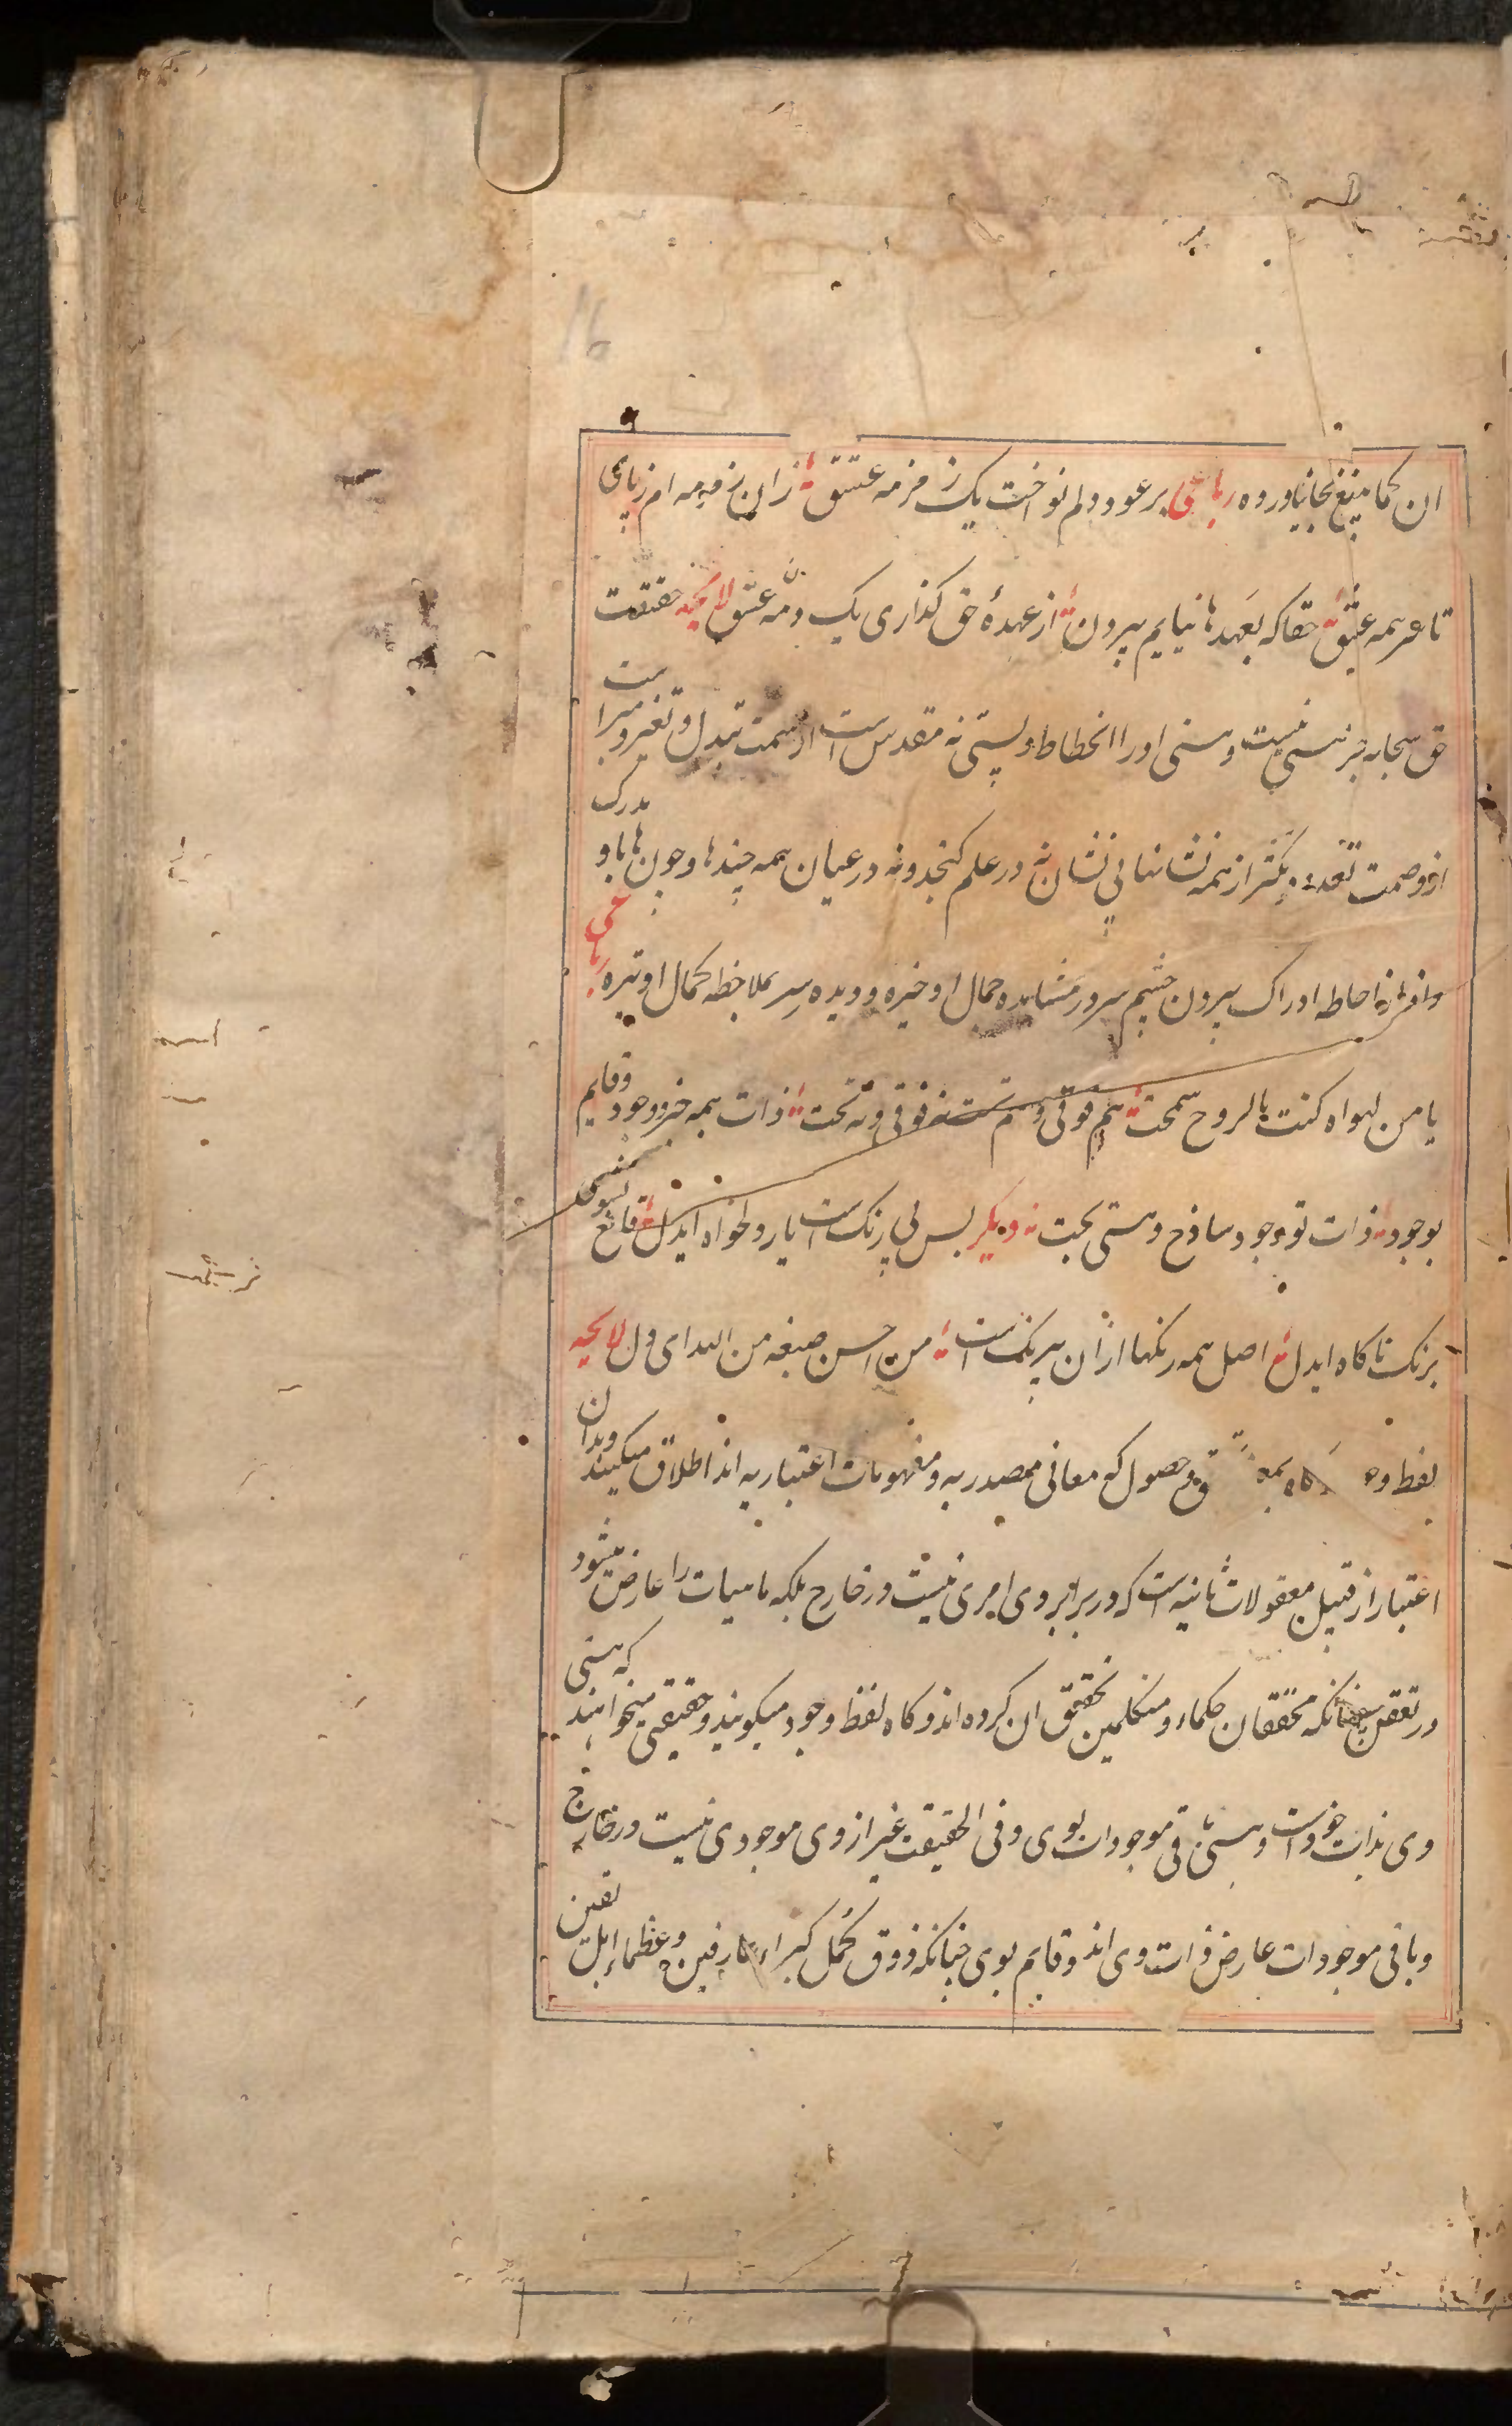 ان کما ینبغی بجا نیاورده رباعی بر عود دلم نواخت یک زمزمه عشق زان زمزمه ام ز پای
تا سر همه عشق حقا که بعهدها نیایم بیرون از عهدهٔ حق گذاری یک دمه عشق لایحه حقیقت
حق سبحانه جز هستی نیست و هستی او را انحطاط و پستی نه مقدس است از سمت تبدل و تغیر و مبراست
از وصمت تعدد و تکثر از همه نشانها بی نشان نه در علم کنجد و نه در عیان همه چندها و چون ها باو مدرک
و او از احاطه ادراک بیرون چشم سر در مشاهده جمال او خیره و دیده سر بملاحظه کمال او تیره رباعی
یا من لهواه کنت بالروح سمحت هم فوقی و هم تحت نه فوقی و نه تحت ذات همه جز وجود و قایم
بوجود ذات تو وجود ساذج و هستی بحت دیکر بس بی رنکست یار دلخواه ایدل قانع نشوی
برنک ناکاه ایدل اصل همه رنکها ازان بیرنکست من احسن صبغة من الله ای دل لایحه
لفظ وجود را کاه بمعنی تحقق و حصول که معانی مصدریه و مفهومات اعتباریه اند اطلاق میکنند و بدان
اعتبار از قبیل معقولات ثانیه است که در برابر وی امری نیست در خارج بلکه ماهیات را عارض میشود
در تعقل چنانکه محققان حکماء و متکلمین تحقیق ان کرده اند و کاه لفظ وجود میکویند و حقیقتی میخواهند که هستی
وی بذات خود است و هستی باقی موجودات بوی و فی الحقیقت غیر از وی موجودی نیست در خارج
و باقی موجودات عارض ذات وی اند و قایم بوی چنانکه ذوق کمل کبراء عارفین و عظماء اهل یقین